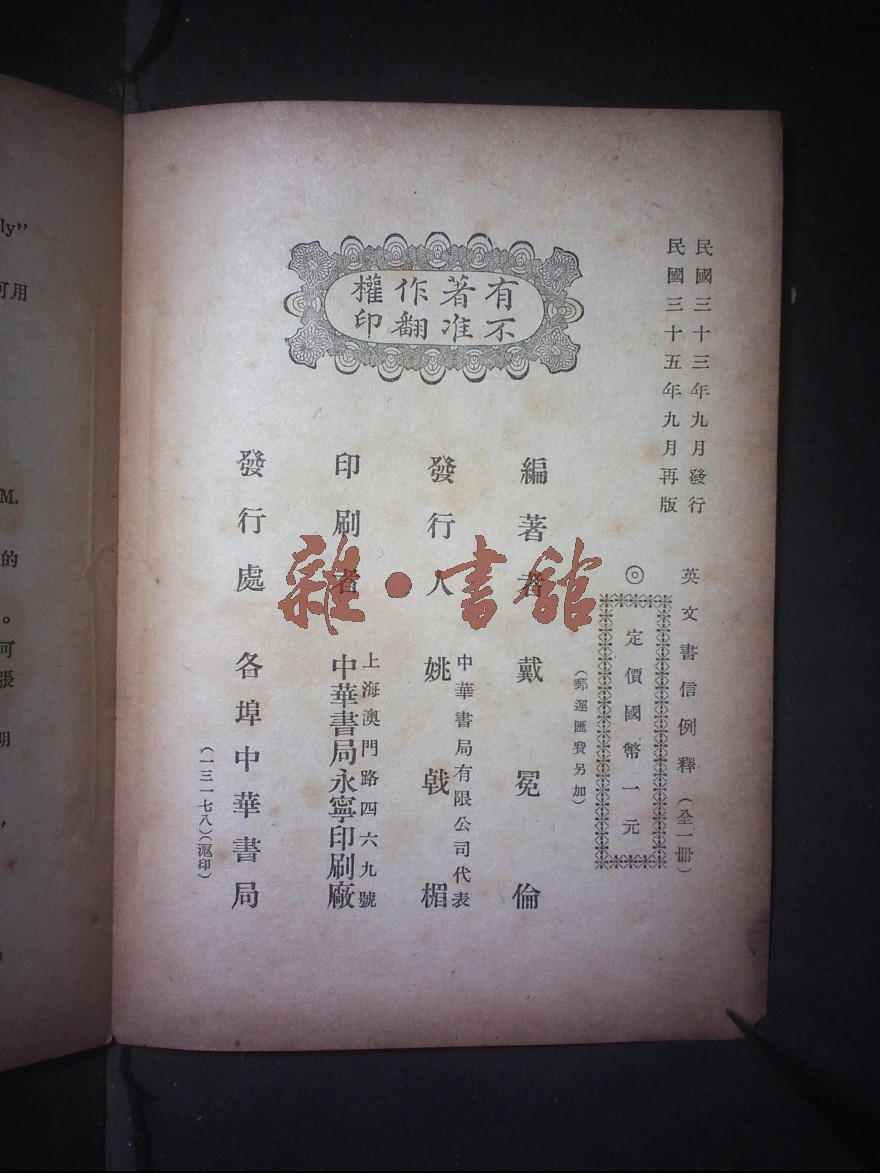 民國三十三年九月發行
民國三十五年九月再版
有著作權
不准翻印
英文書信例釋（全一冊）
◎
定價國幣一元
（郵運匯費另加）
編著者 戴冕倫
發行人 中華書局有限公司代表
姚戟楣
印刷者 上海澳門路四六九號
中華書局永寧印刷廠
發行處 各埠中華書局
（一三一七八）（滬印）
雜·書館
ly”
可用
M.
的
。
可
張
明